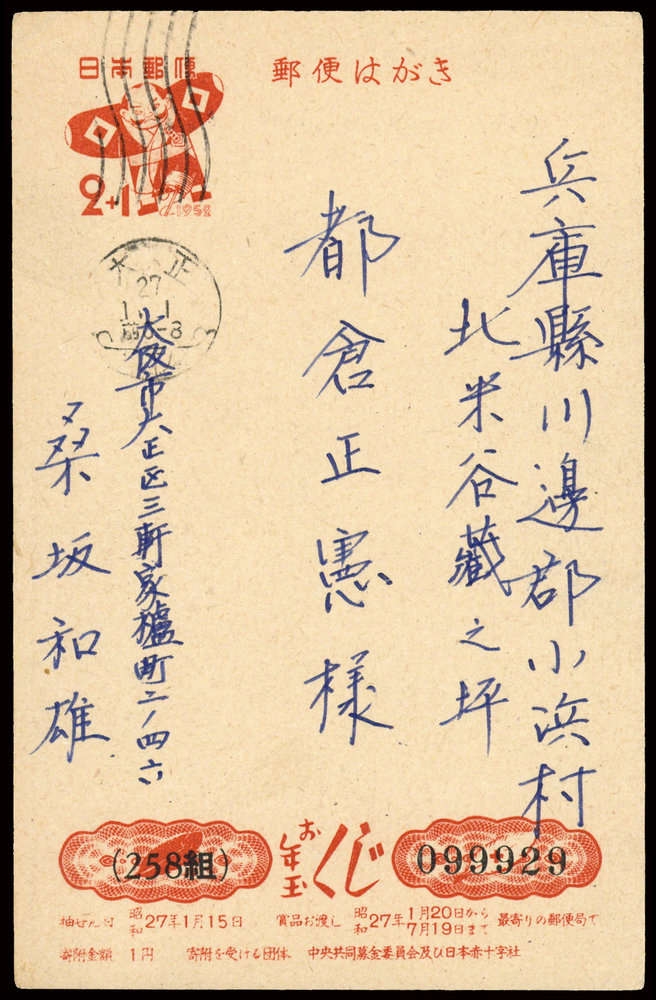 日本郵便
郵便はがき
2+1
1952
大正
27
1.1
前0-8
兵庫縣川邊郡小浜村
北米谷藏之坪
都倉正憲様
大阪市大正区三軒家町二ノ四六
桑坂和雄
(258組)
お年玉くじ
099929
抽せん日 昭和27年1月15日 賞品お渡し 昭和27年1月20日から7月19日まで 最寄りの郵便局で
寄附金額 1円 寄附を受ける団体 中央共同募金委員会及び日本赤十字社